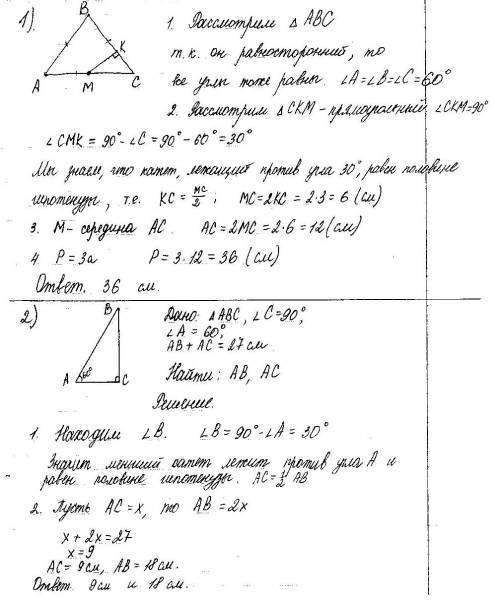 1).
B
K
A
M
C
1. Рассмотрим △ ABC
т.к. он равносторонний, то
все углы тоже равны. ∠A=∠B=∠C=60°
2. Рассмотрим △CKM – прямоугольный. ∠CKM=90°
∠CMK = 90°-∠C = 90°-60° = 30°
Мы знаем, что катет, лежащий против угла 30°, равен половине
гипотенузы, т.е. KC = MC/2 ; MC=2KC = 2·3 = 6 (см)
3. M – середина AC. AC=2MC = 2·6 = 12 (см)
4. P = 3a P = 3·12 = 36 (см)
Ответ. 36 см.
2)
B
A
60°
C
Дано: △ABC, ∠C=90°,
∠A = 60°,
AB + AC = 27 см
Найти: AB, AC
Решение.
1. Находим ∠B. ∠B = 90°-∠A = 30°
Значит меньший катет лежит против угла A и
равен половине гипотенузы. AC = 1/2 AB
2. Пусть AC = x, то AB = 2x
x + 2x = 27
x = 9
AC = 9 см, AB = 18 см.
Ответ 9 см и 18 см.